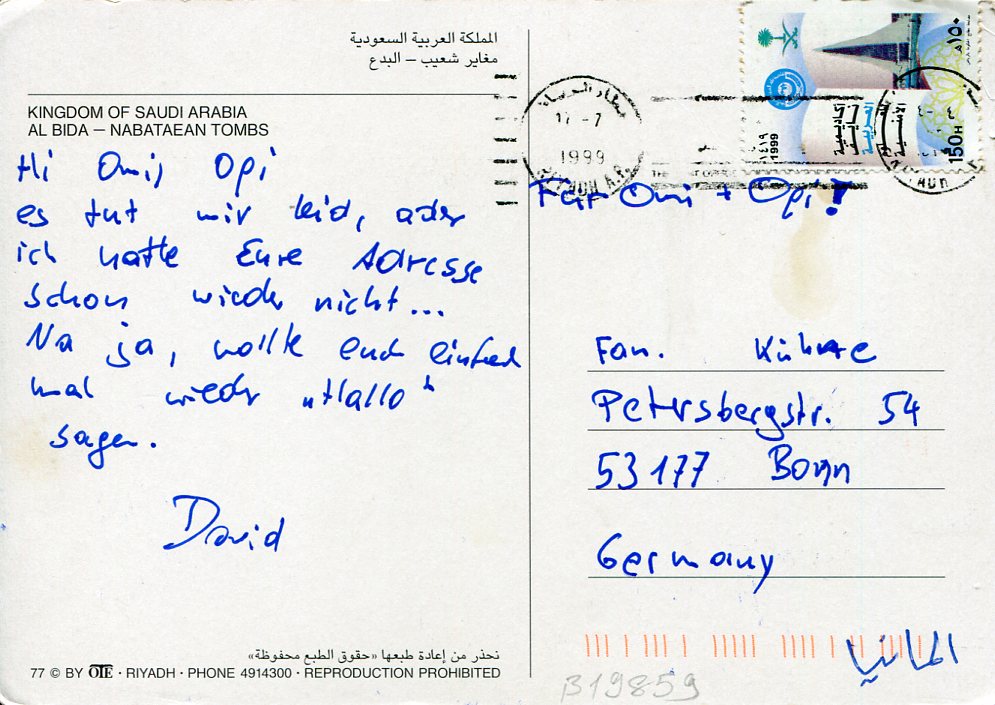 المملكة العربية السعودية
مغاير شعيب – البدع
KINGDOM OF SAUDI ARABIA
AL BIDA – NABATAEAN TOMBS
Hi Omi, Opi
es tut mir leid, aber
ich hatte Eure Adresse
schon wieder nicht...
Na ja, wollte euch einfach
mal wieder „Hallo“
sagen.
David
نحذر من إعادة طبعها «حقوق الطبع محفوظة»
77 © BY OTE · RIYADH · PHONE 4914300 · REPRODUCTION PROHIBITED
١٥٠
150 H
١٤١٩
1999
أكاديمية
نايف
العربية
للعلوم
الأمنية
مطار الرياض
17-7
1999
Für Omi + Opi!
Fam. Kühne
Petersbergstr. 54
53177 Bonn
Germany
المانيا
B19859